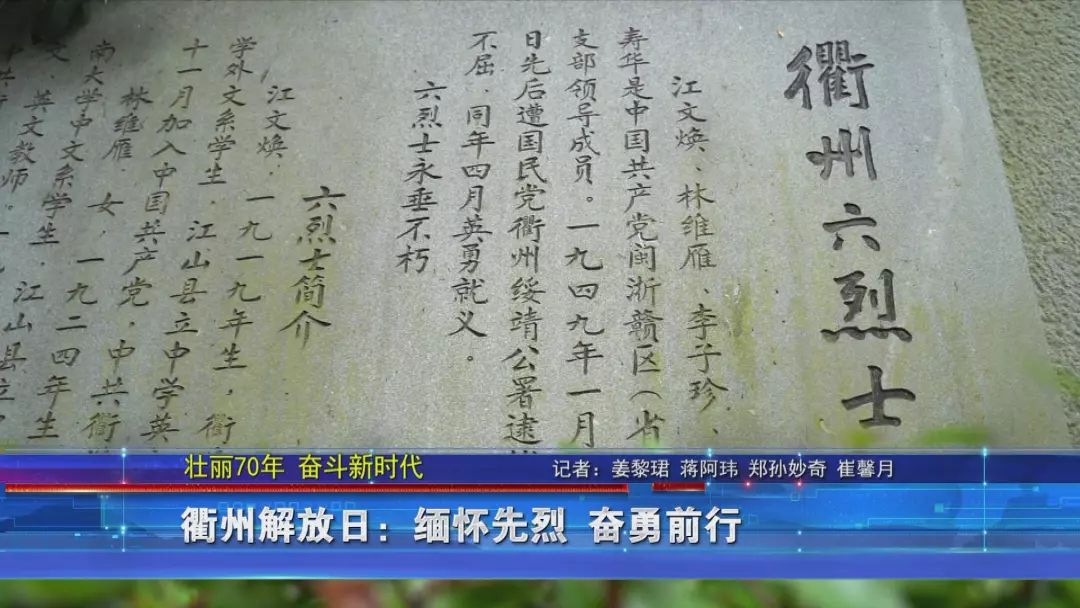 衢州六烈士
江文焕、林维雁、李子珍、
寿华是中国共产党闽浙赣区（省
支部领导成员。一九四九年一月
日先后遭国民党衢州绥靖公署逮
不屈，同年四月英勇就义。
六烈士永垂不朽
六烈士简介
江文焕，一九一九年生，衢
学外文系学生，江山县立中学英
十一月加入中国共产党，中共衢
林维雁，女，一九二四年生
南大学中文系学生，江山县立
文、英文教师。
壮丽70年 奋斗新时代
记者：姜黎珺 蒋阿玮 郑孙妙奇 崔馨月
衢州解放日：缅怀先烈 奋勇前行